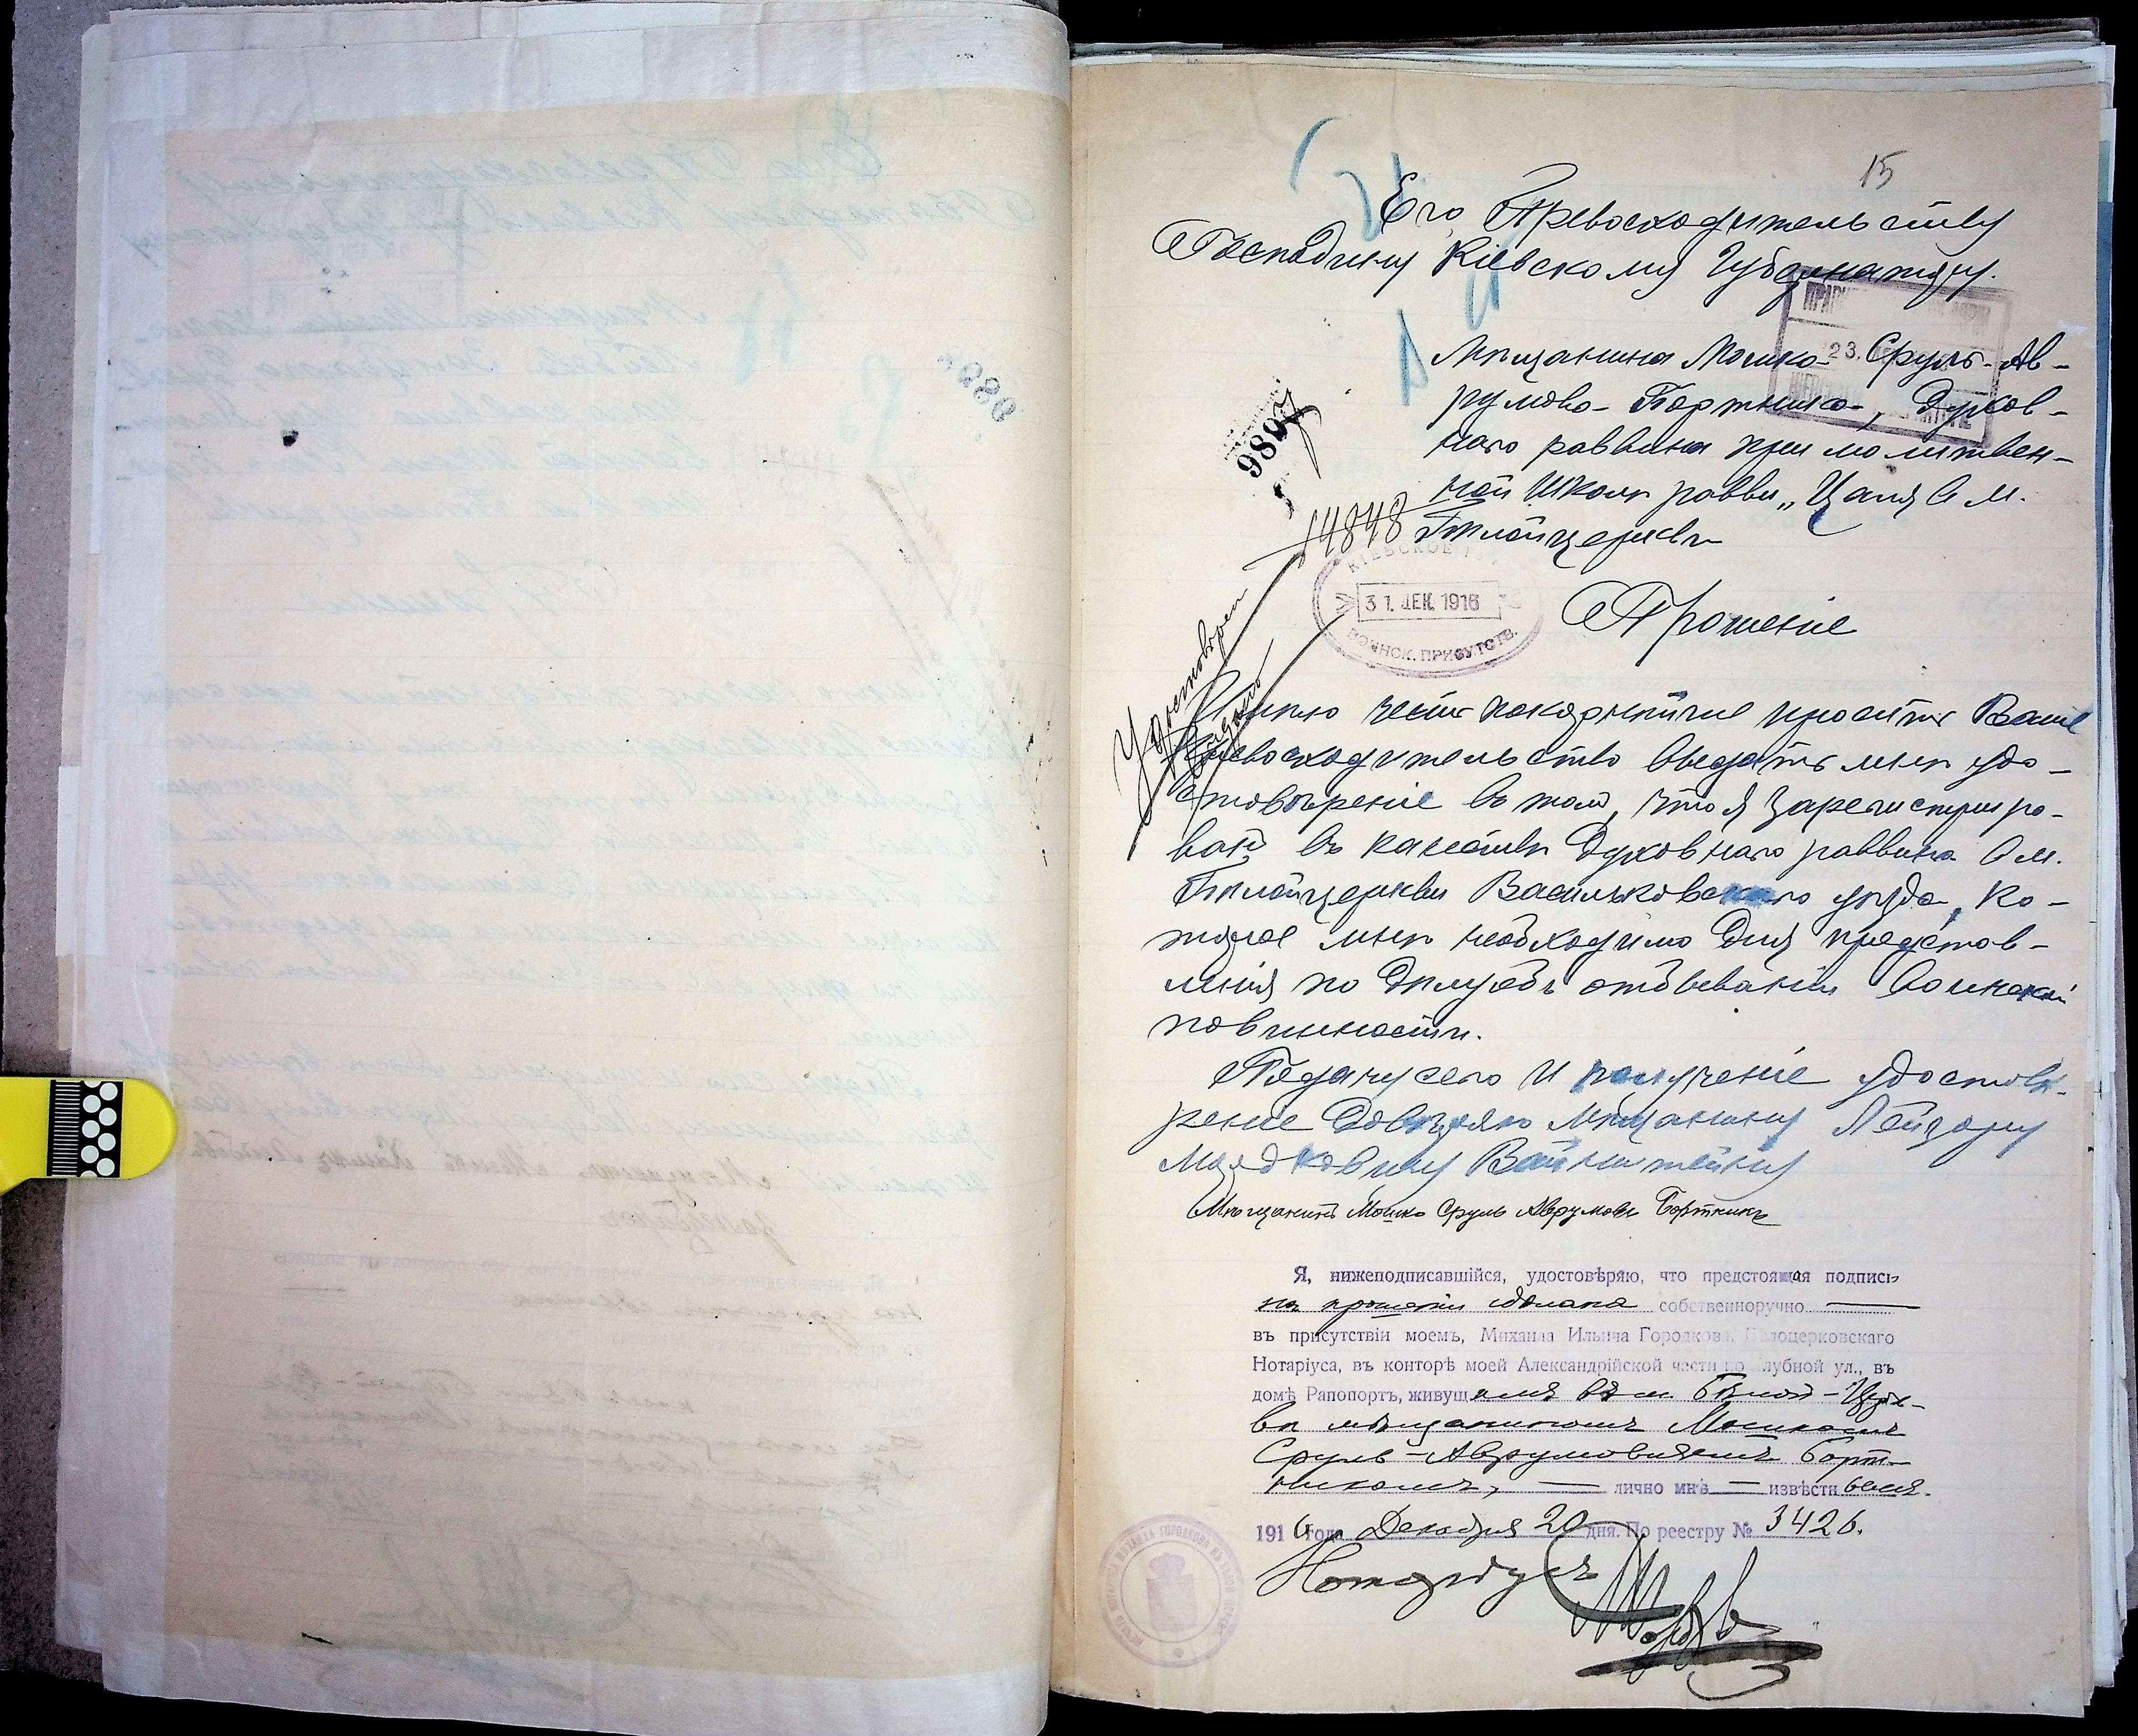 15
Его Превосходительству
Господину Кіевскому Губернатору.
Мѣщанина Мошко-Сруль-Ав-
румова Бортника, Духов-
наго раввина при молитвен-
ной школѣ равви „Цаля в м.
Бѣлойцеркви
23.
9807
14848
КІЕВСКОЕ
31. ДЕК. 1916
ВОИНСК. ПРИСУТСТВ.
Прошеніе
Удостовѣрен
Имѣю честь покорнѣйше просить Ваше
Превосходительство выдать мнѣ удо-
стовѣреніе въ том, что я зарегистриро-
ван въ качествѣ Духовнаго раввина в м.
Бѣлойцеркви Васильковскаго уѣзда, ко-
торое мнѣ необходимо для представ-
ленія по дѣлу объ отбываніи воинской
повинности.
Подачу сего и полученіе удостовѣ-
рение довѣряю мѣщанину Лейзору
Мордковичу Вайнштейну
Мѣщанинъ Мошко Сруль Аврумовъ Бортникъ
Я, нижеподписавшійся, удостовѣряю, что предстоящая подпись
на прошеніи сдѣлана собственноручно
въ присутствіи моемъ, Михаила Ильича Городкова, Бѣлоцерковскаго
Нотаріуса, въ конторѣ моей Александрійской части по Клубной ул., въ
домѣ Рапопортъ, живущимъ въ м. Бѣлой-Церк-
ви мѣщаниномъ Мошкомъ
Сруль-Аврумовичемъ Борт-
никомъ, — лично мнѣ — извѣстнымъ.
1916 года Декабря 20 дня. По реестру № 3426.
Нотаріусъ